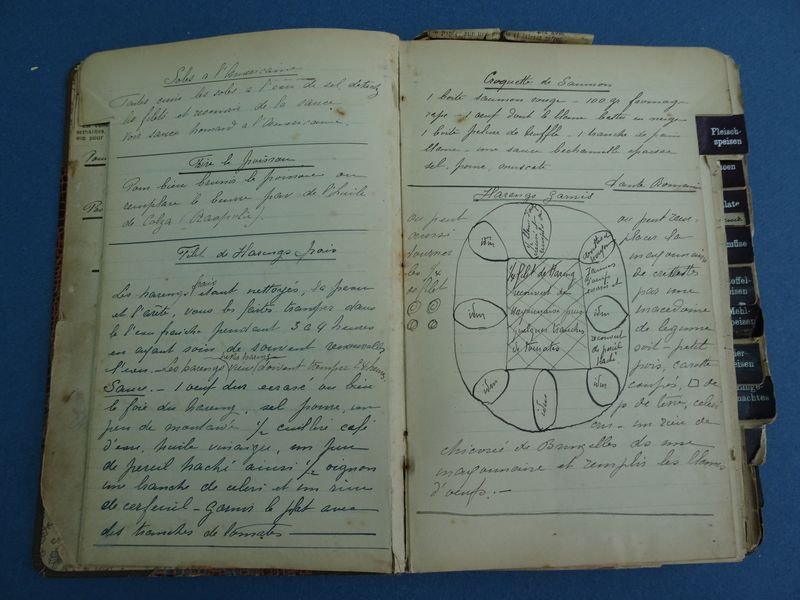 Soles a l'Américaine
Faites cuire les soles a l'eau de sel, détachez
les filets et recouvrir de la sauce
voir sauce homard a l'Américaine.
Rire le poisson
Pour bien brunir le poisson on
remplace le beurre par de l'huile
de Colza
Filet de Harengs frais
Les harengs frais étant nettoyés, la peau
et l'arête, vous les faites tremper dans
de l'eau fraîche pendant 3 a 4 heures
en ayant soin de souvent renouveller
l'eau. - Les harengs doivent tremper 24 heures
Sauce. - 1 oeuf dur écrasé ou bien
le foie du hareng, sel poivre, un
peu de moutarde 1/2 cuillère café
d'eau, huile vinaigre, un peu
de persil haché ainsi 1/2 oignon
une branche de celeri et un rien
de cerfeuil - Garnir le plat avec
des tranches de tomates
Croquette de Saumon
1 boite saumon rouge - 100 gr fromage
rapé - 1 oeuf dont le blanc battu en neige
1 boite pelure de truffle - 1 tranche de pain
blanc - une sauce bechamelle épaisse
sel, poivre, muscade
Tante Romain
Harengs Garnis
on peut
aussi
tourner
les 1/4
en filet
idem
idem
idem
idem
idem
idem
le filet de hareng
recouvert de
mayonnaise puis
quelques tranches
de tomates
recouvert
de persil
haché
on peut rem
placer la
mayonnaise
de crevettes
par une
macedoine
de legume
soit - petit
pois, carotte
coupés, □ de
p de terre, celeri
ou - un rien de
chicorée de Bruxelles ds une
mayonnaise et remplir les blancs
d'oeufs. -
Fleisch-
speisen
müse
Mehl-
speisen